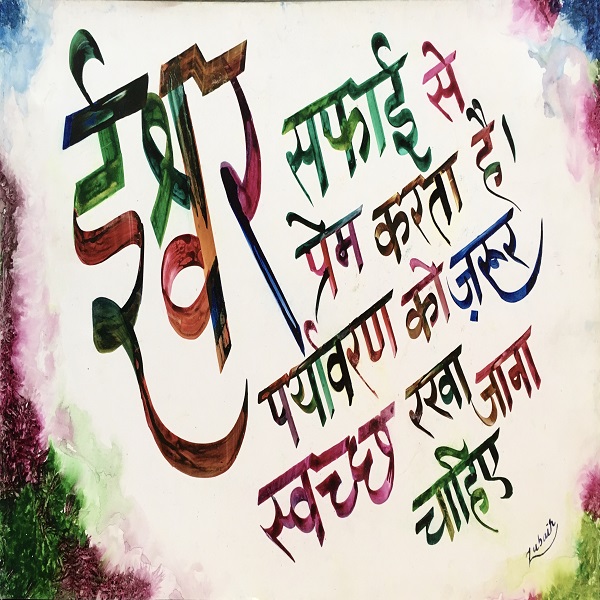 ईश्वर
सफाई से
प्रेम करता है।
पर्यावरण को ज़रूर
स्वच्छ रखा जाना
चाहिए
Zubair